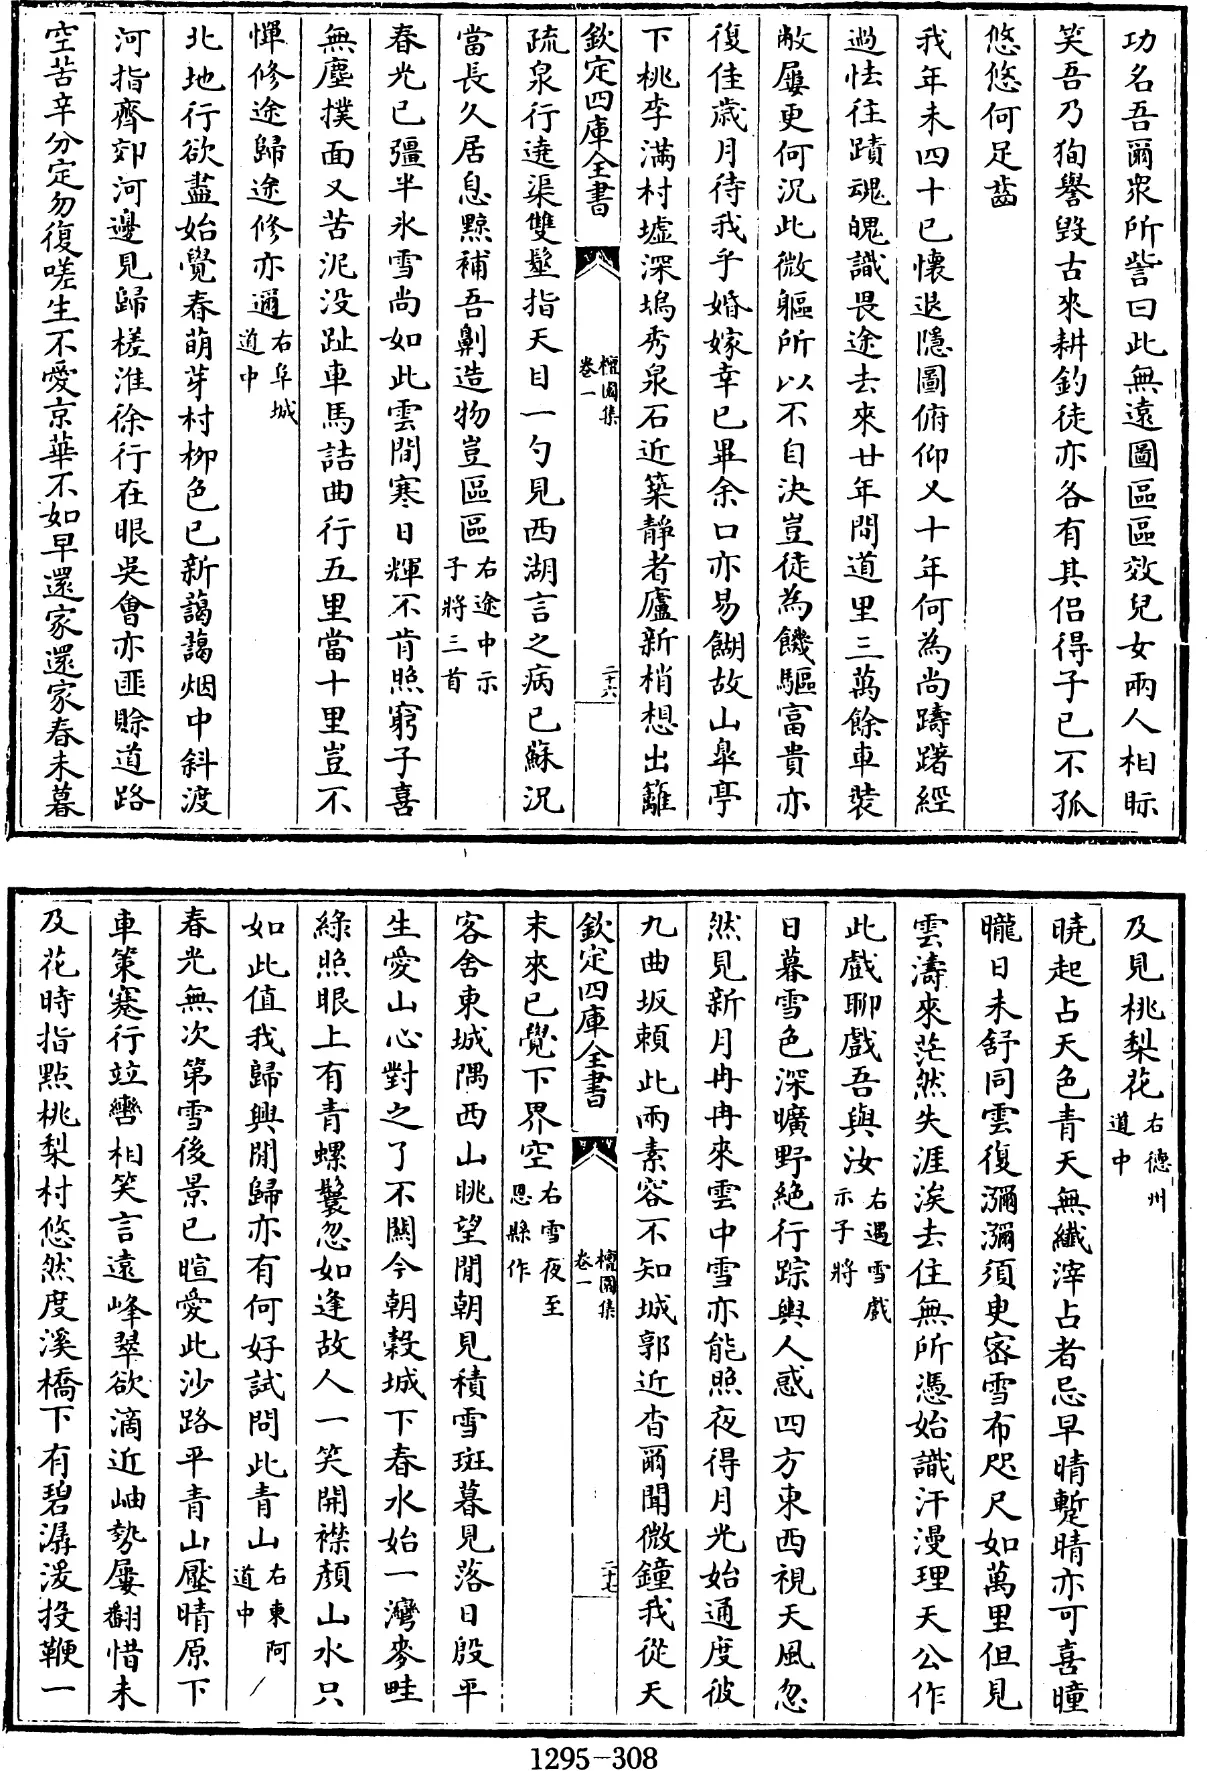 功名吾爾衆所訾曰此無遠圖區區效兒女兩人相眎
笑吾乃狥譽毀古來耕釣徒亦各有其侣得子已不孤
悠悠何足齒
我年未四十已懷退隱圖俯仰乂十年何為尚躊躇經
過怯往蹟魂魄識畏途去來廿年間道里三萬餘車裝
敝屢更何況此微軀所以不自決豈徒為饑驅富貴亦
復佳歲月待我乎婚嫁幸已畢余口亦易餬故山臯亭
下桃李滿村墟深塢秀泉石近築靜者廬新梢想出籬
欽定四庫全書
檀園集
卷一
二十六
疏泉行遶渠雙髻指天目一勺見西湖言之病已蘇況
當長久居息黥補吾劓造物豈區區
右途中示
子將三首
春光已彊半氷雪尚如此雲間寒日輝不肯照窮子喜
無塵撲面又苦泥没趾車馬詰曲行五里當十里豈不
憚修途歸途修亦通
右阜城
道中
北地行欲盡始覺春萌芽村栁色已新藹藹烟中斜渡
河指齊郊河邊見歸槎淮徐行在眼吳會亦匪賖道路
空苦辛分定勿復嗟生不愛京華不如早還家還家春未暮
及見桃梨花
右德州
道中
曉起占天色青天無纎滓占者忌早晴蹔晴亦可喜曈
曨日未舒同雲復瀰瀰須臾密雪布咫尺如萬里但見
雲濤來茫然失涯涘去住無所憑始識汗漫理天公作
此戲聊戲吾與汝
右遇雪戲
示子將
日暮雪色深曠野絶行踪輿人惑四方東西視天風忽
然見新月冉冉來雲中雪亦能照夜得月光始通度彼
九曲坂頼此兩素容不知城郭近杳爾聞微鐘我從天
欽定四庫全書
檀園集
卷一
二十七
末來已覺下界空
右雪夜至
恩縣作
客舍東城隅西山眺望間朝見積雪斑暮見落日殷平
生愛山心對之了不關今朝榖城下春水始一灣麥畦
綠照眼上有青螺鬟忽如逢故人一笑開襟顏山水只
如此值我歸興閒歸亦有何好試問此青山
右東阿
道中
春光無次第雪後景已暄愛此沙路平青山壓晴原下
車策蹇行竝轡相笑言遠峰翠欲滴近岫勢屢翻惜未
及花時指點桃梨村悠然度溪橋下有碧潺湲投鞭一
1295-308